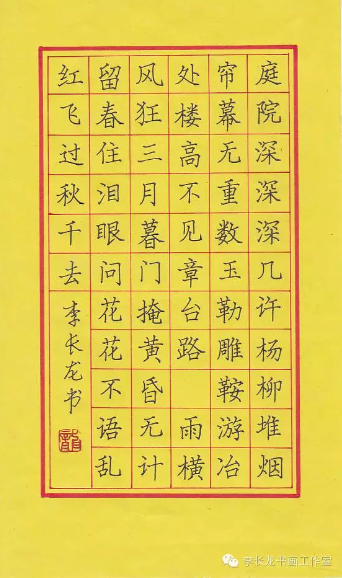 庭院深深深几许杨柳堆烟
帘幕无重数玉勒雕鞍游冶
处楼高不见章台路 雨横
风狂三月暮门掩黄昏无计
留春住泪眼问花花不语乱
红飞过秋千去
李长龙书
李长龙书画工作室